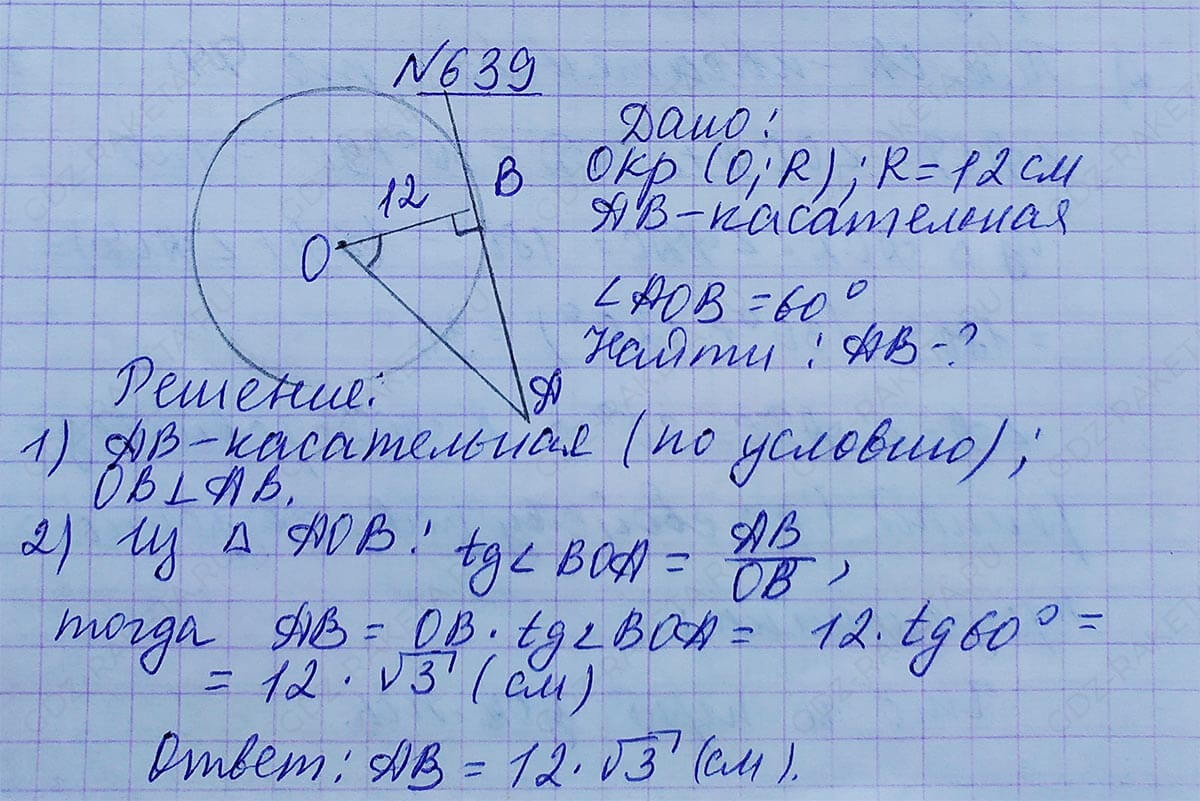 N639
Дано:
Окр (O; R); R = 12 см
AB - касательная
12
B
O
∠AOB = 60°
Найти: AB - ?
A
Решение:
1) AB - касательная (по условию);
OB ⊥ AB.
2) Из △ AOB: tg∠BOA = AB/OB,
тогда AB = OB · tg∠BOA = 12 · tg60° =
= 12 · √3 (см)
Ответ: AB = 12 · √3 (см).